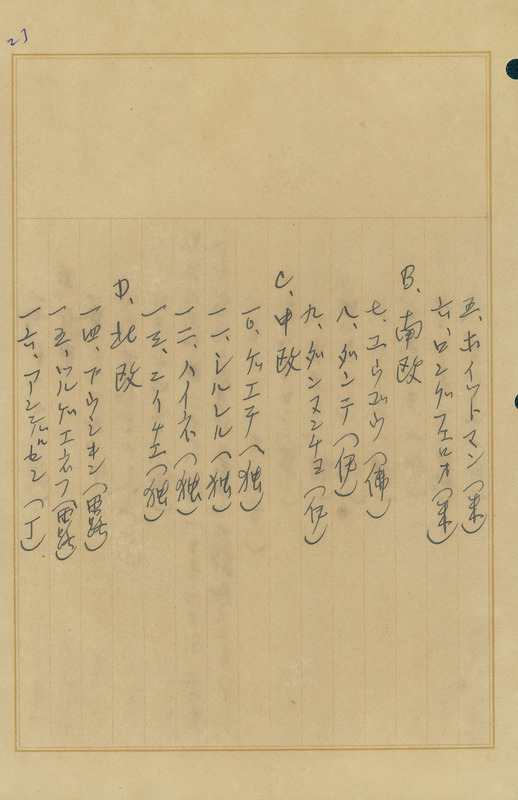 23
五、ホイットマン（米）
六、ロングフェロオ（米）
B、南欧
七、ユウゴウ（佛）
八、ダンテ（伊）
九、ダンヌンチヨ（伊）
C、中欧
一〇、ゲエテ（独）
一一、シルレル（独）
一二、ハイネ（独）
一三、ニイチエ（独）
D、北欧
一四、プウシキン（露）
一五、ツルゲエネフ（露）
一六、アンデルセン（丁）